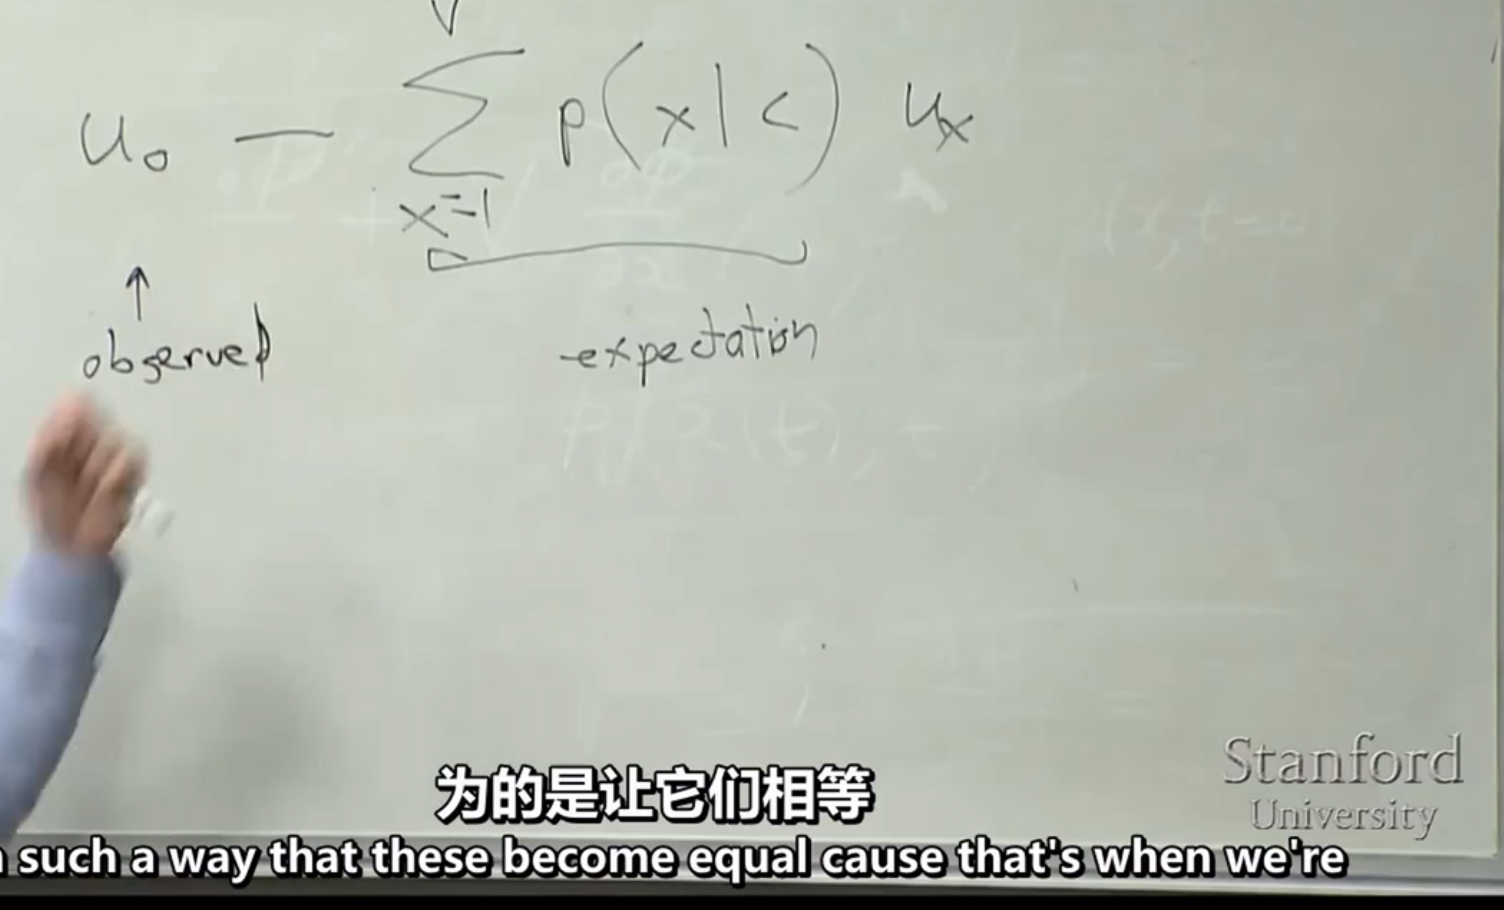 V
u₀ — ∑ p(x|c) uₓ
x=1
↑
observed
expectation
Stanford
University
为的是让它们相等
such a way that these become equal cause that's when we're